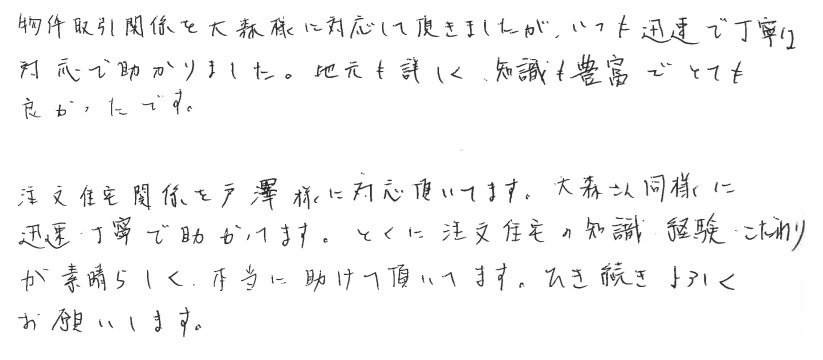 物件取引関係を大森様に対応して頂きましたが、いつも迅速で丁寧な
対応で助かりました。地元も詳しく、知識も豊富でとても
良かったです。
注文住宅関係を戸澤様に対応頂いてます。大森さん同様に
迅速・丁寧で助かってます。とくに注文住宅の知識・経験・こだわり
が素晴らしく、本当に助けて頂いてます。引き続きよろしく
お願いします。